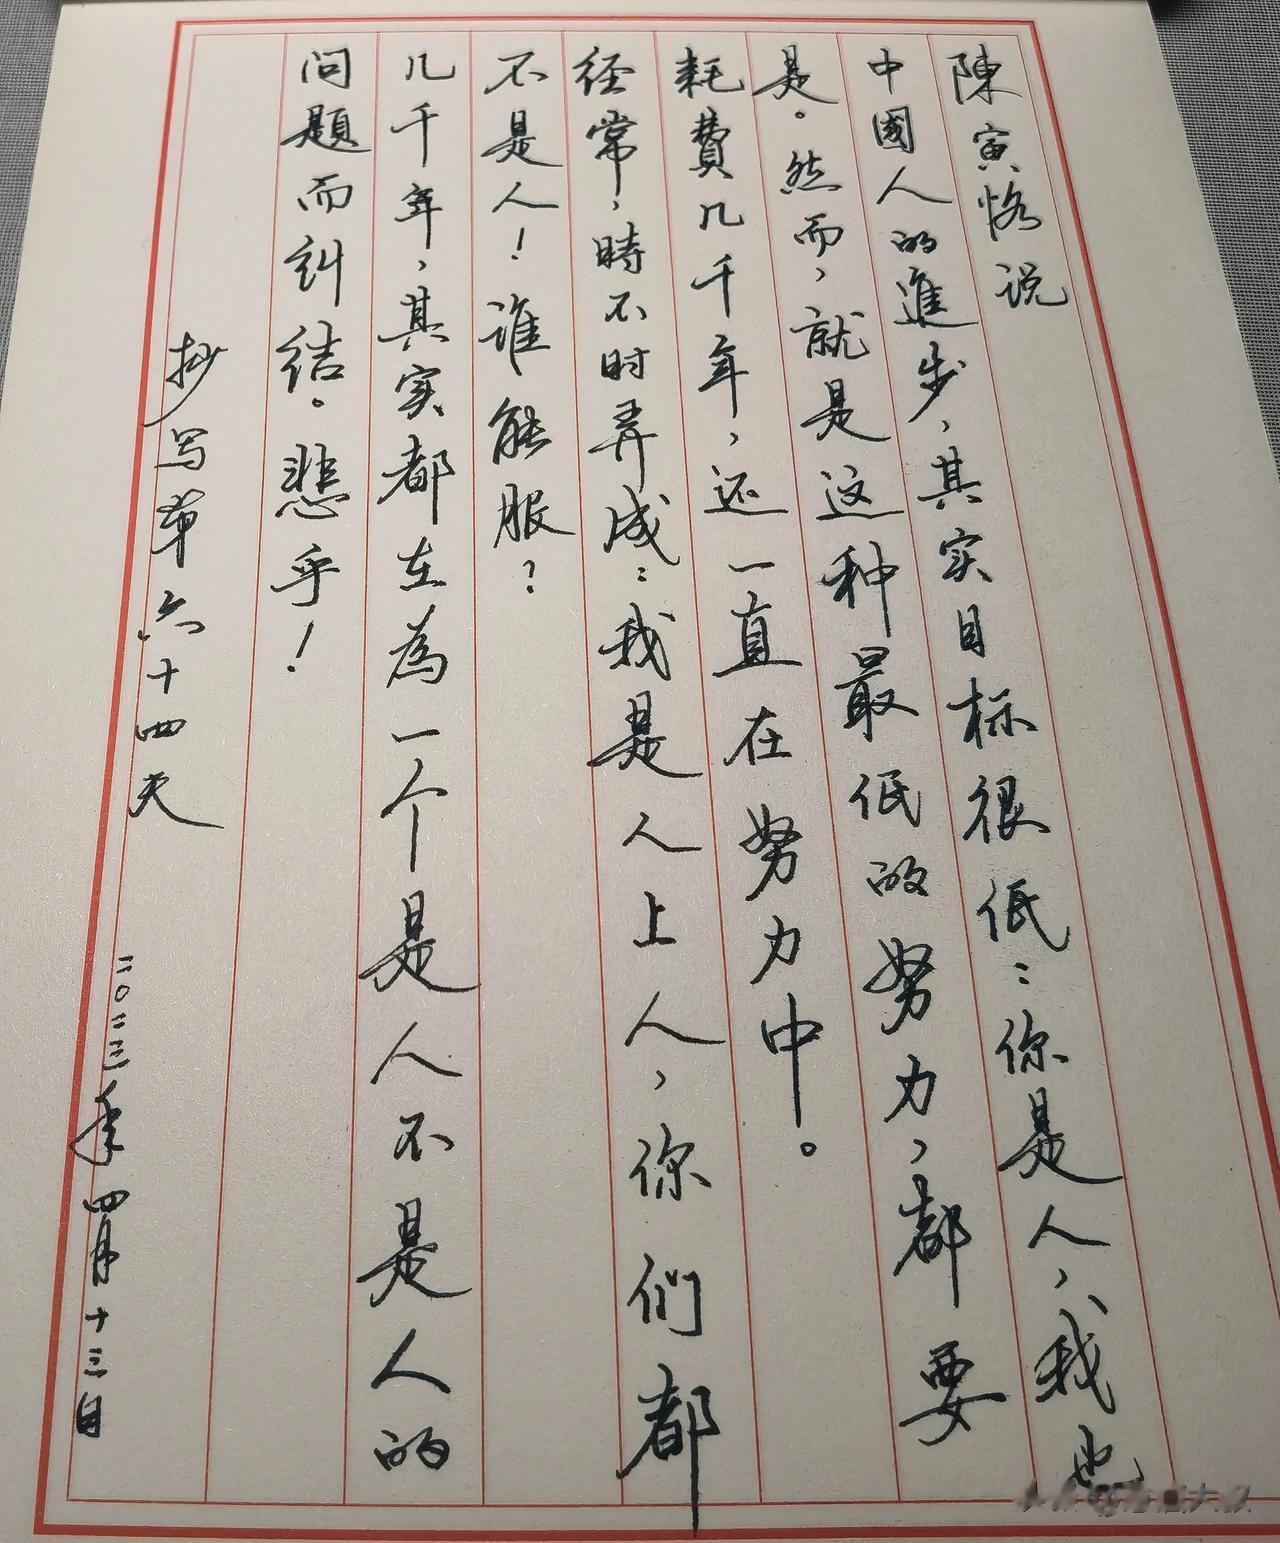 陳寅恪说
中國人的進步，其实目标很低：你是人，我也
是。然而，就是这种最低的努力，都要
耗費几千年，还一直在努力中。
经常，時不时弄成：我是人上人，你们都
不是人！谁能服？
几千年，其实都在為一个是人不是人的
问题而纠结。悲乎！
抄写第六十四天
二〇二三年四月十三日